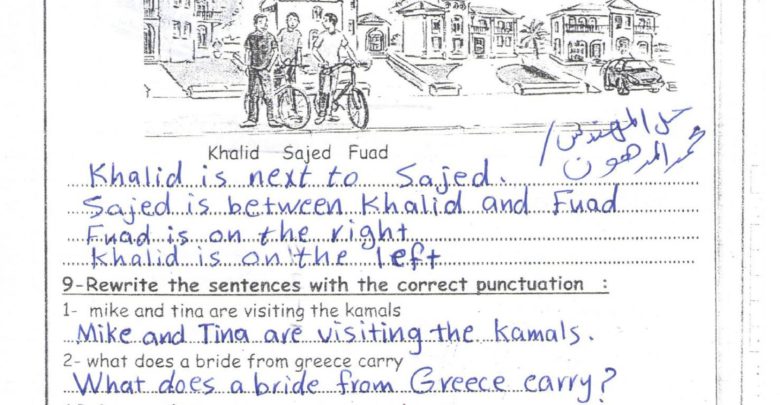 Khalid Sajed Fuad
حل المهندس /
محمد المدهون
Khalid is next to Sajed.
Sajed is between Khalid and Fuad
Fuad is on the right
Khalid is on the left
9-Rewrite the sentences with the correct punctuation :
1- mike and tina are visiting the kamals
Mike and Tina are visiting the Kamals.
2- what does a bride from greece carry
What does a bride from Greece carry?